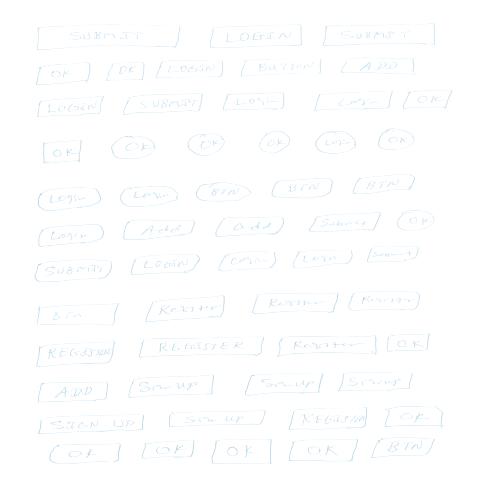 SUBMIT LOGIN SUBMIT
OK OK LOGIN BUTTON ADD
LOGIN SUBMIT Login Login OK
OK OK OK OK Login OK
Login Login BTN BTN BTN
Login Add Add Submit OK
SUBMIT LOGIN Login Login Submit
BTN Register Register Register
REGISTER REGISTER Register OK
ADD Sign up Sign up Sign up
SIGN UP Sign up REGISTER OK
OK OK OK OK BTN